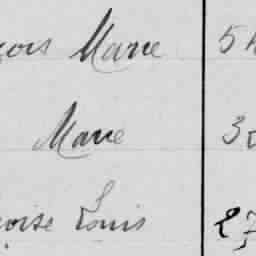 çois Marie 5
Marie 3
çoise Louis 27